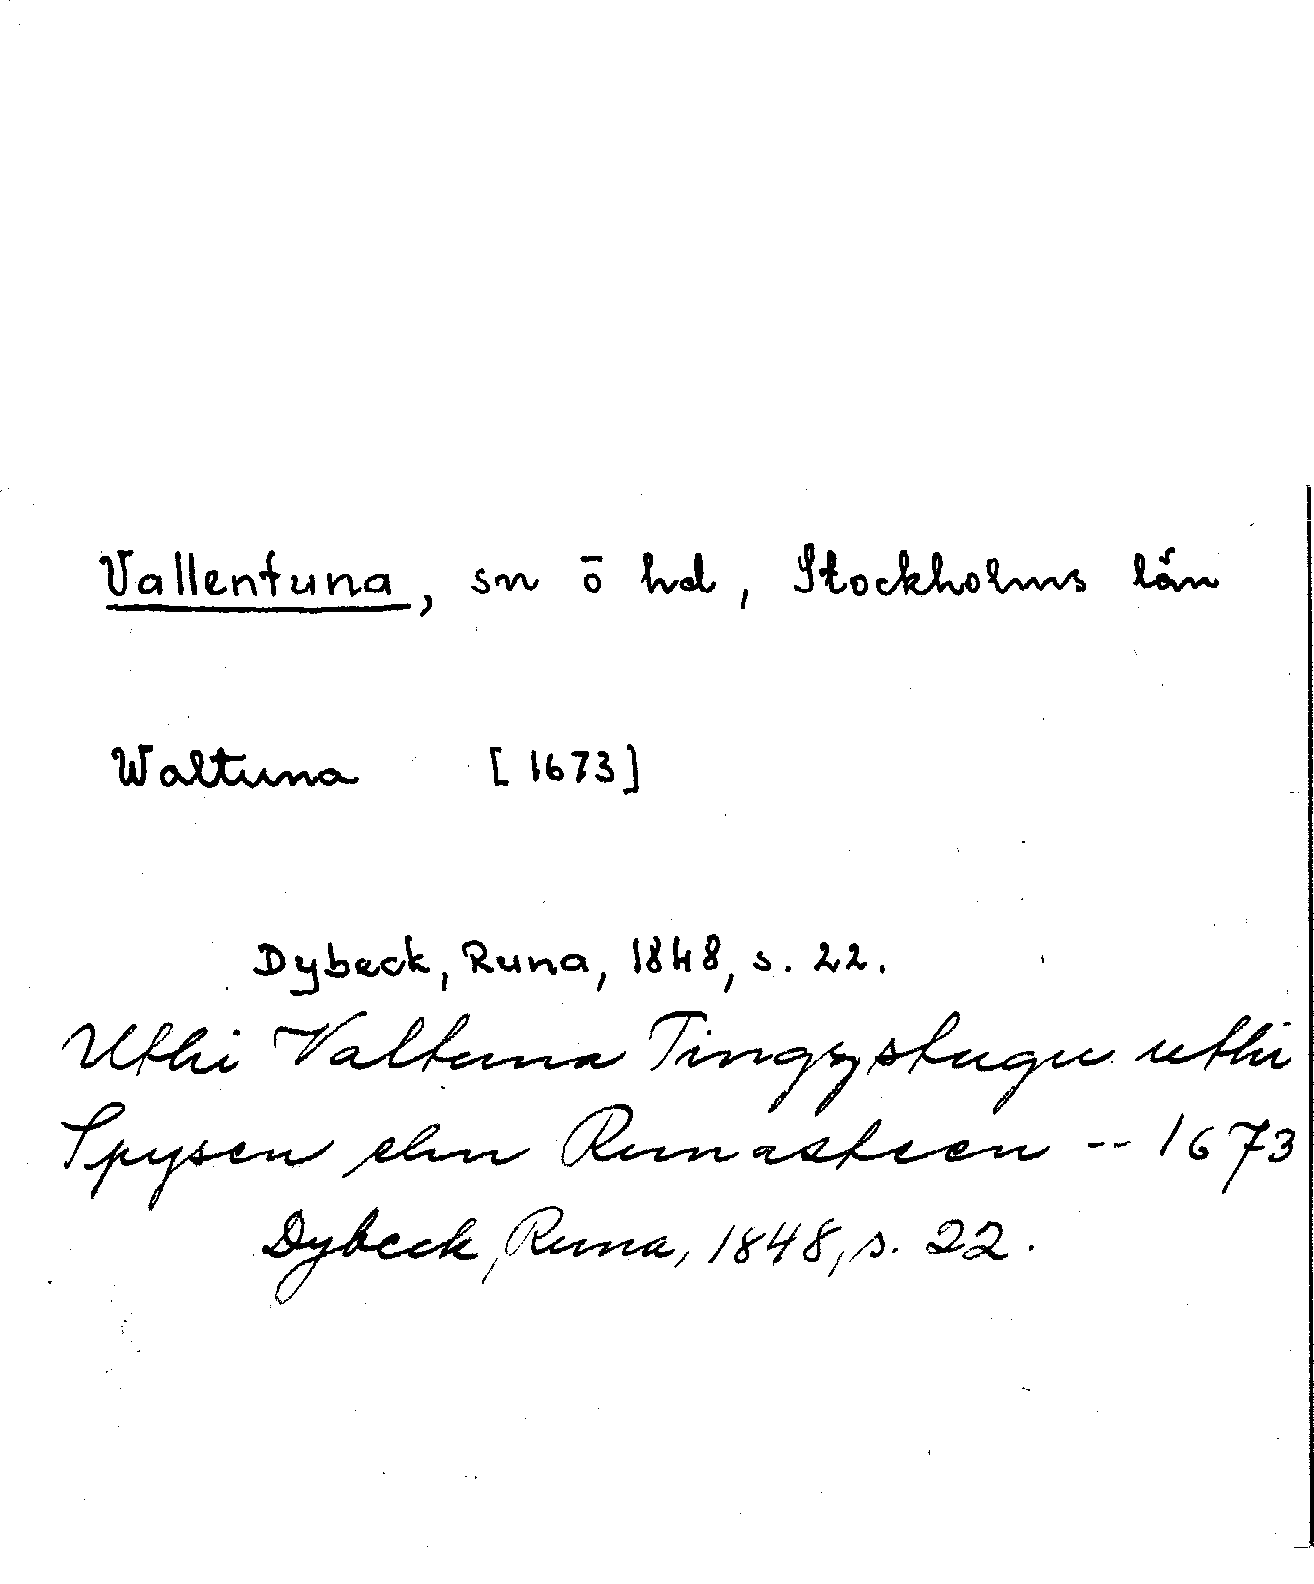 Vallentuna, sn ō hd, Stockholms län
Waltuna [1673]
Dybeck, Runa, 1848, s. 22.
Uthi Valtuna Tingzstugu uthi
Spysen ehn Runasteen -- 1673
Dybeck, Runa, 1848, s. 22.